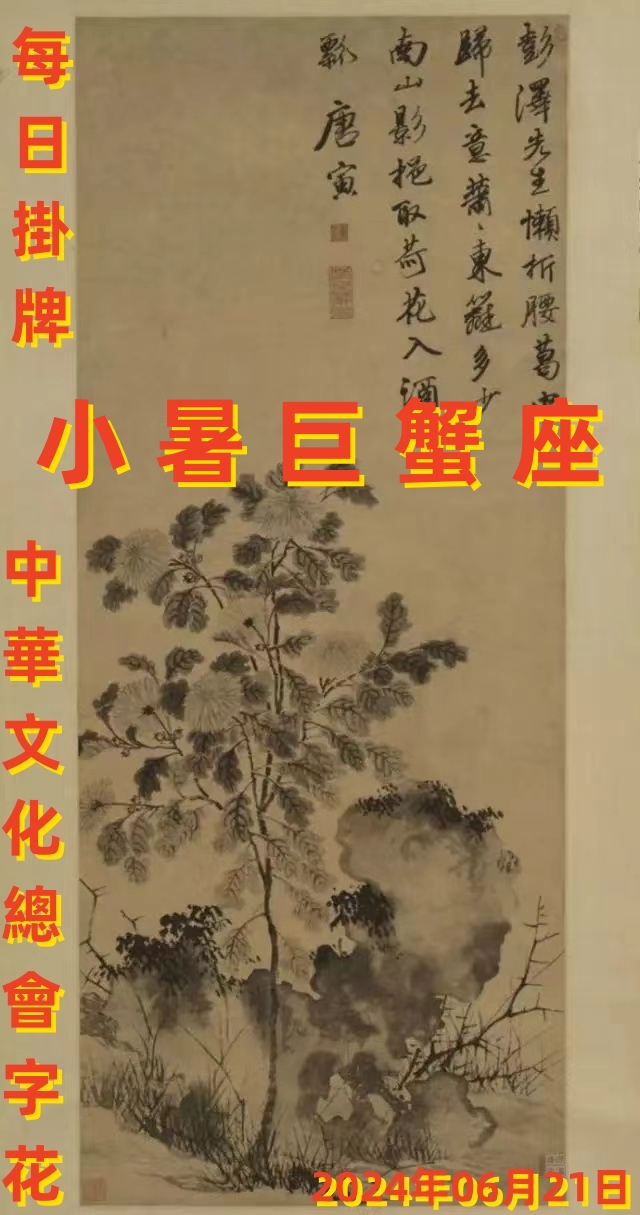 每日掛牌
彭澤先生懶折腰葛
歸去意蕭、東籬多少
南山影挹取荷花入酒
瓢 唐寅
小暑巨蟹座
中華文化總會字花
2024年06月21日